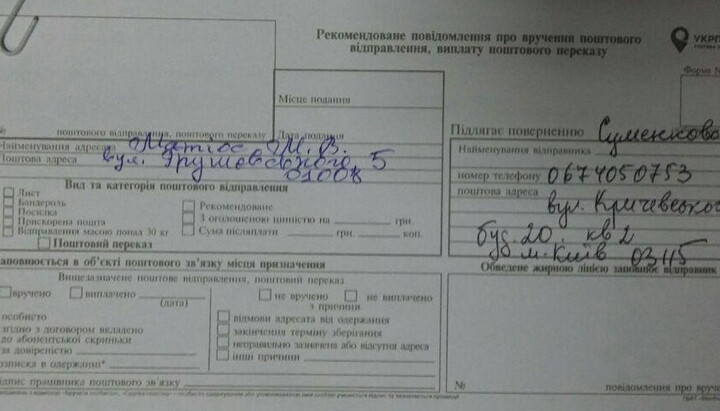 Рекомендоване повідомлення про вручення поштового
відправлення, виплату поштового переказу
УКРП
Форма №
Місце подання
№ поштового відправлення, поштового переказу
Дата подання
Найменування адресата Матіос М. В.
Поштова адреса вул. Грушевського, 5
01008
Вид та категорія поштового відправлення
Лист
Бандероль
Посилка
Прискорена пошта
Відправлення масою понад 30 кг
Поштовий переказ
Рекомендоване
З оголошеною цінністю на грн.
Сума післяплати грн. коп.
Підлягає поверненню Суменкова
Найменування відправника
номер телефону 0674050753
поштова адреса
вул. Кричевського
буд. 20. кв 2
м. Київ 03115
Обведене жирною лінією заповнює відправник
аповнюється в об'єкті поштового зв'язку місця призначення
Вищезазначене поштове відправлення, поштовий переказ
вручено
виплачено
(дата)
не вручено
не виплачено
з причини
особисто
згідно з договором вкладено
до абонентської скриньки
за довіреністю
Розписка в одержанні*
відмови адресата від одержання
закінчення терміну зберігання
неправильно зазначена або відсутня адреса
інші причини
ідпис працівника поштового зв'язку
№ повідомлення про вруче